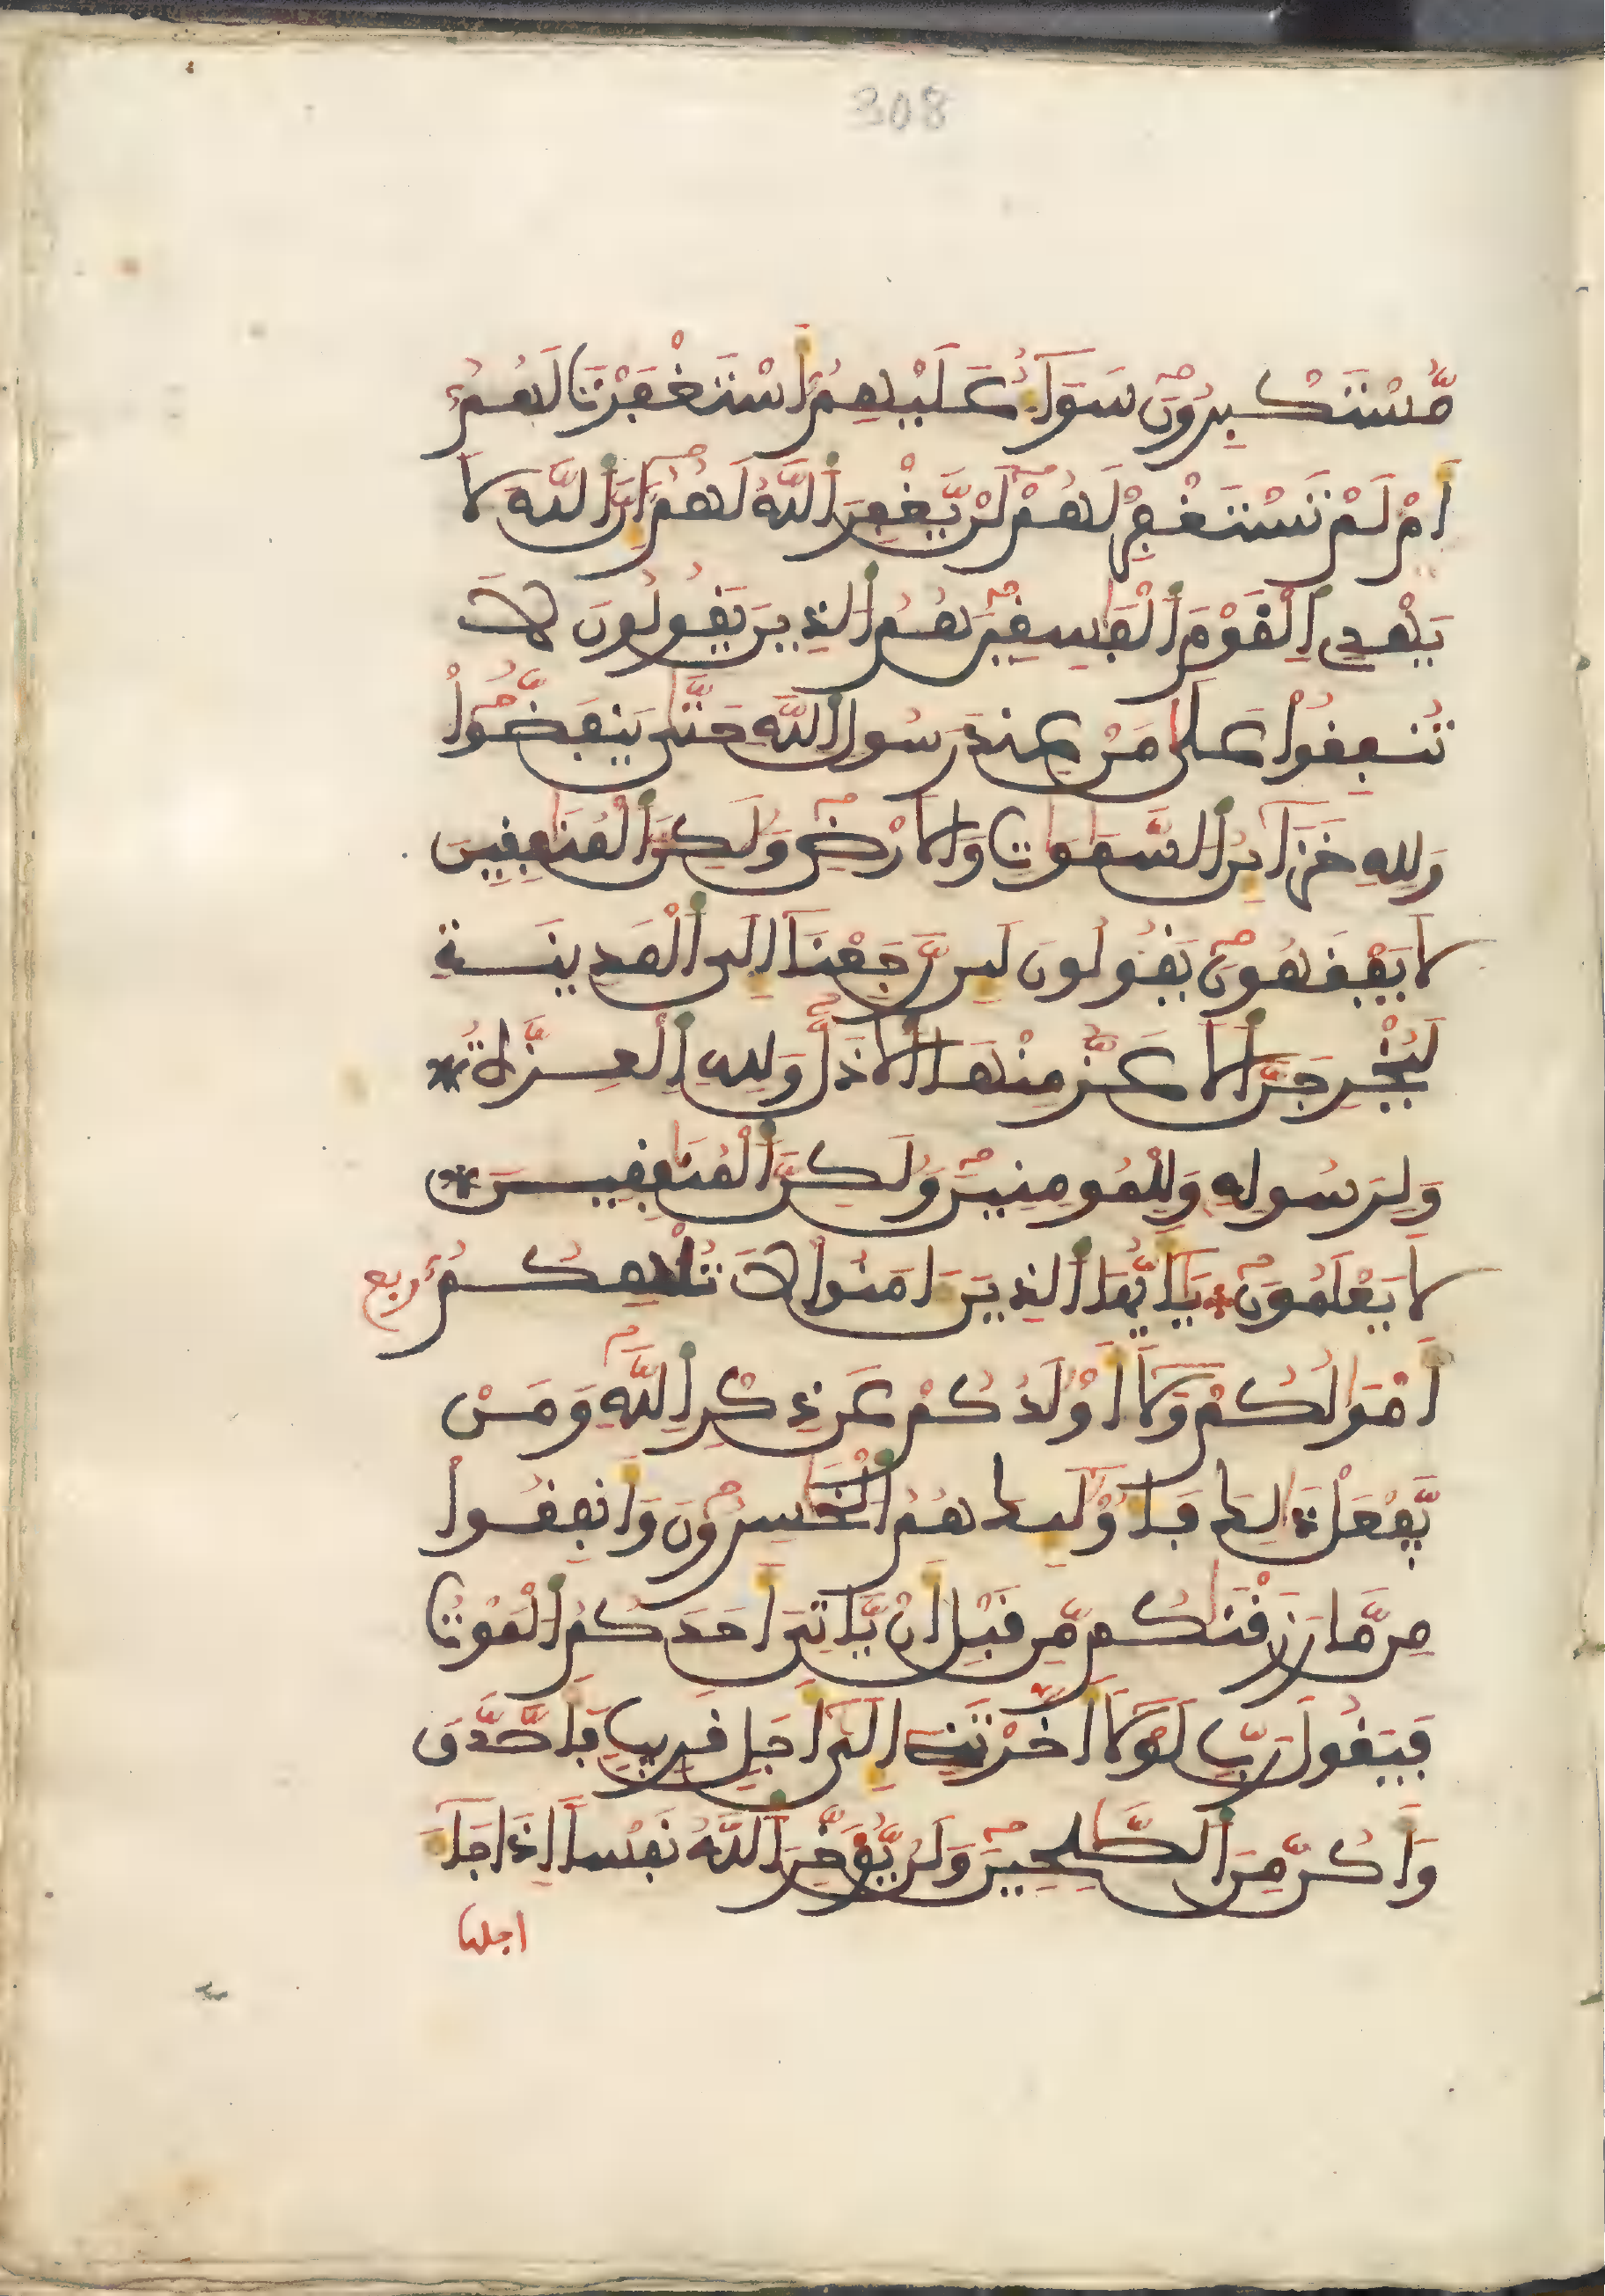 308
مُّسْتَكْبِرُونَ سَوَآءٌ عَلَيْهِمُۥٓ أَسْتَغْفَرْتَ لَهُمُۥٓ
أَمْ لَمْ تَسْتَغْفِرْ لَهُمْ لَنْ يَّغْفِرَ اَ۬للَّهُ لَهُمُۥٓ إِنَّ اَ۬للَّهَ لَا
يَهْدِے اِ۬لْقَوْمَ اَ۬لْفَٰسِقِينَ هُمُ اُ۬لذِينَ يَقُولُونَ لَا
تُنفِقُواْ عَلَىٰ مَنْ عِندَ رَسُولِ اِ۬للَّهِ حَتَّىٰ يَنفَضُّواْ
وَلِلهِ خَزَآئِنُ اُ۬لسَّمَٰوَٰتِ وَالَارْضِ وَلَٰكِنَّ اَ۬لْمُنَٰفِقِينَ
لَا يَفْقَهُونَ يَقُولُونَ لَئِن رَّجَعْنَآ إِلَى اَ۬لْمَدِينَةِ
لَيُخْرِجَنَّ اَ۬لَاعَزُّ مِنْهَا اَ۬لَاذَلَّ وَلِلهِ اِ۬لْعِزَّةُ
وَلِرَسُولِهِۦ وَلِلْمُومِنِينَ وَلَٰكِنَّ اَ۬لْمُنَٰفِقِينَ
لَا يَعْلَمُونَ يَٰٓأَيُّهَا اَ۬لذِينَ ءَامَنُواْ لَا تُلْهِكُمُۥٓ ربع
أَمْوَٰلُكُمْ وَلَآ أَوْلَٰدُكُمْ عَن ذِكْرِ اِ۬للَّهِ وَمَنْ
يَّفْعَلْ ذَٰلِكَ فَأُوْلَٰٓئِكَ هُمُ اُ۬لْخَٰسِرُونَ وَأَنفِقُواْ
مِن مَّا رَزَقْنَٰكُم مِّن قَبْلِ أَنْ يَّاتِيَ أَحَدَكُمُ اُ۬لْمَوْتُ
فَيَقُولَ رَبِّ لَوْلَآ أَخَّرْتَنِےٓ إِلَىٰٓ أَجَلٖ قَرِيبٖ فَأَصَّدَّقَ
وَأَكُن مِّنَ اَ۬لصَّٰلِحِينَ وَلَنْ يُّؤَخِّرَ اَ۬للَّهُ نَفْساً إِذَا جَآءَ
اجلها